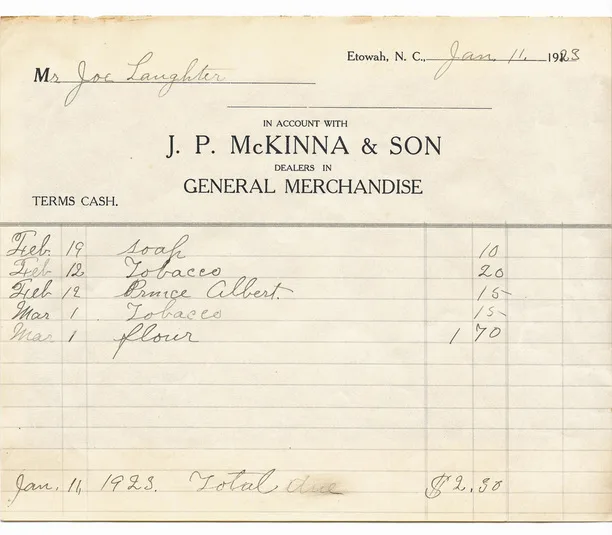 Etowah, N. C., Jan 11, 1923
Mr Joe Laughter
IN ACCOUNT WITH
J. P. McKINNA & SON
DEALERS IN
GENERAL MERCHANDISE
TERMS CASH.
Feb. 19 soap 10
Feb 12 Tobacco 20
Feb 12 Prince Albert. 15
Mar 1 Tobacco 15
Mar 1 flour 1 70
Jan. 11, 1923. Total due $2.30